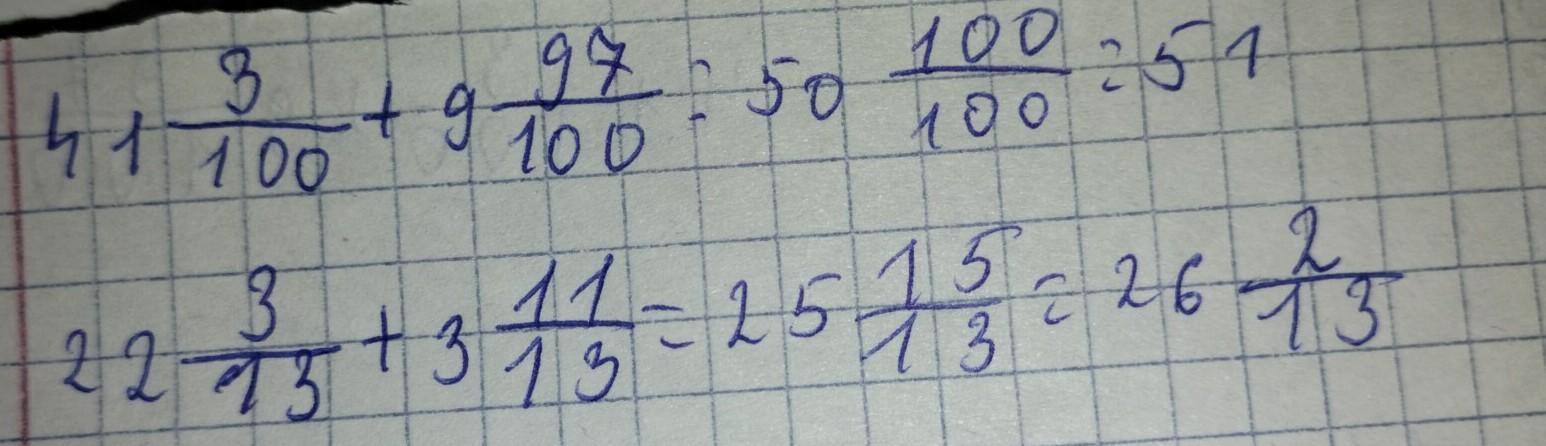 41 3/100 + 9 97/100 = 50 100/100 = 51
22 3/13 + 3 11/13 = 25 15/13 = 26 2/13